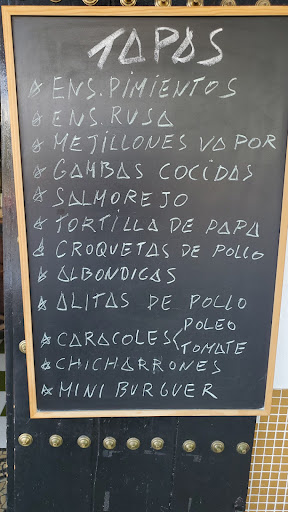 TAPAS
* ENS. PIMIENTOS
* ENS. RUSA
* MEJILLONES VAPOR
* GAMBAS COCIDAS
* SALMOREJO
* TORTILLA DE PAPA
* CROQUETAS DE POLLO
* ALBONDIGAS
* ALITAS DE POLLO
* CARACOLES < POLEO
TOMATE
* CHICHARRONES
* MINI BURGUER